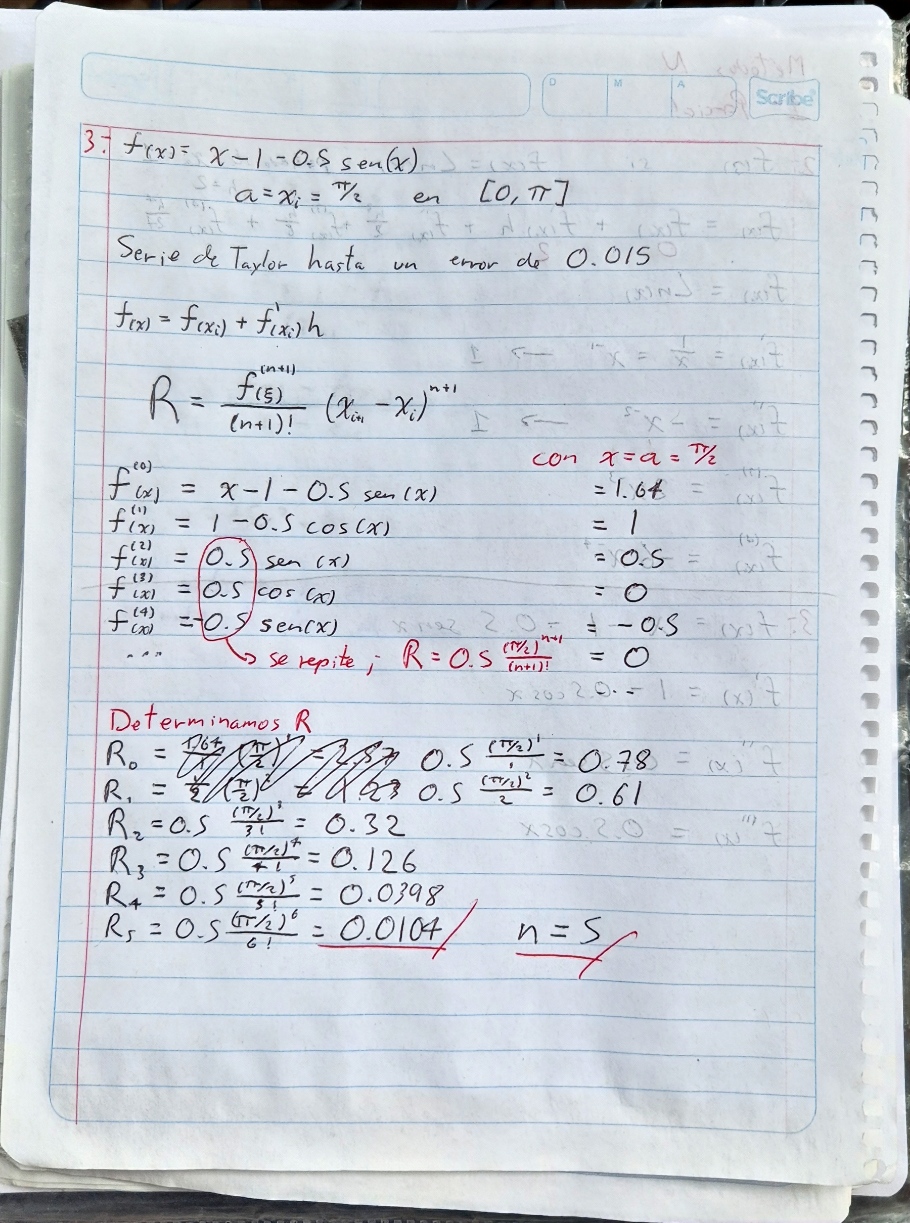 D M A Scribe
3.- f(x) = x - 1 - 0.5 sen(x)
a = xi = π/2 en [0, π]
Serie de Taylor hasta un error de 0.015
f(x) = f(xi) + f'(xi) h
R = f^(n+1)(ξ) / (n+1)! (xi+1 - xi)^n+1
con x = a = π/2
f^(0)(x) = x - 1 - 0.5 sen(x) = 1.64
f^(1)(x) = 1 - 0.5 cos(x) = 1
f^(2)(x) = 0.5 sen(x) = 0.5
f^(3)(x) = 0.5 cos(x) = 0
f^(4)(x) = -0.5 sen(x) = -0.5
.... → se repite ; R = 0.5 (π/2)^n+1 / (n+1)! = 0
Determinamos R
R0 = 0.5 (π/2)^1 / 1 = 0.78
R1 = 0.5 (π/2)^2 / 2 = 0.61
R2 = 0.5 (π/2)^3 / 3! = 0.32
R3 = 0.5 (π/2)^4 / 4! = 0.126
R4 = 0.5 (π/2)^5 / 5! = 0.0398
R5 = 0.5 (π/2)^6 / 6! = 0.0104 n = 5